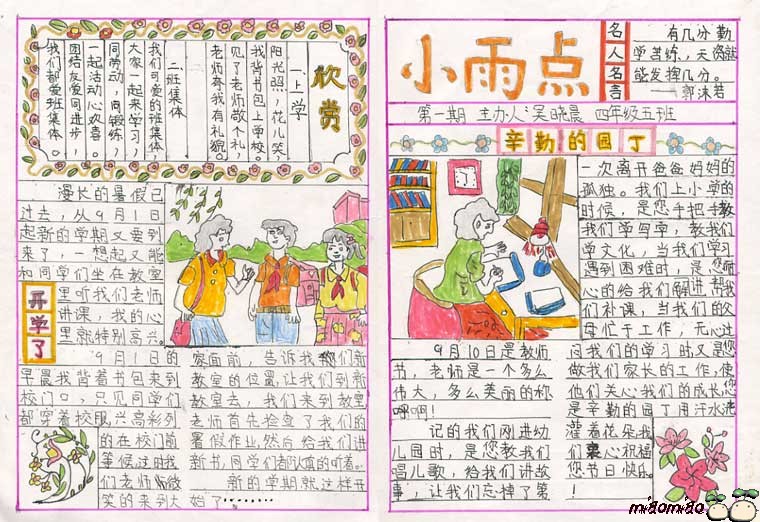 欣赏
一、上学
阳光照,花儿笑,
我背书包上学校。
见了老师敬个礼,
老师夸我有礼貌。
二班集体
我们可爱的班集体,
大家一起来学习,
同劳动,同锻练,
一起活动心欢喜。
团结友爱同进步,
我们都爱班集体。
漫长的暑假已
过去,从9月1日
起新的学期又要到
来了,一想起又能
和同学们坐在教室
里听我们老师
讲课,我的心
里就特别高兴。
开学了
9月1日的
早晨我背着书包来到
校门口,只见同学们
都穿着校服,兴高彩列
的在校门前
等候,这时我
们老师微
笑的来到大
家面前,告诉我们新
教室的位置,让我们到新
教室去,我们来到教室
老师首先检查了我们的
暑假作业,然后给我们讲
新书,同学们都认真的听着。
新的学期就这样开
始了·········
小雨点
名人名言
有几分勤
学苦练,天资就
能发挥几分。
——郭沫若
第一期 主办人:吴晓晨 四年级五班
辛勤的园丁
9月10日是教师
书,老师是一个多么
伟大,多么美丽的称
呼啊!
记的我们刚进幼
儿园时,是您教我们
唱儿歌,给我们讲故
事,让我们忘掉了第
一次离开爸爸妈妈的
孤独。我们上小学的
时候,是您手把手教
我们学写字,教我们
学文化,当我们学习
遇到困难时,是您耐
心的给我们解讲帮我
们补课,当我们的父
母忙于工作,无心过
问我们的学习时又是您
做我们家长的工作,使
他们关心我们的成长您
是辛勤的园丁用汗水浇
灌着花朵我们衷心祝福
您节日快乐。
!
miaomiao